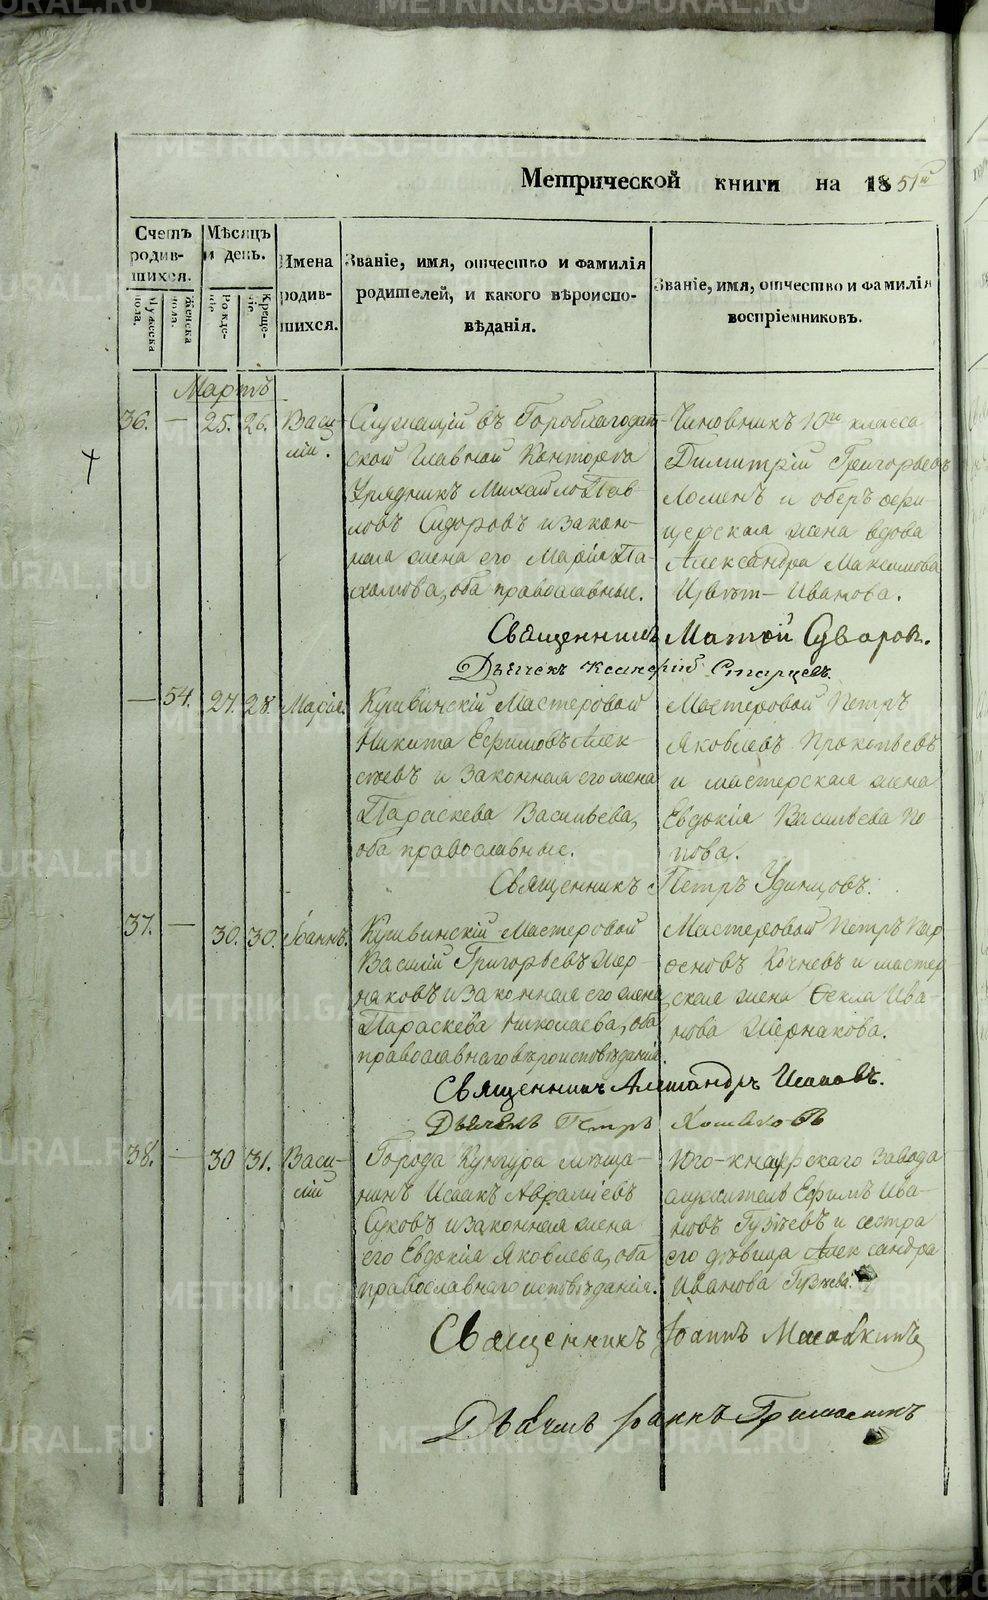 METRIKI.GASO-URAL.RU
Метрической книги на 1851й
Счетъ родив-шихся.
Мужеска пола.
Женска пола.
Мѣсяцъ и день.
Рожде-нія.
Креще-нія.
Имена родив-шихся.
Званіе, имя, отчество и фамилія
родителей, и какого вѣроиспо-
вѣданія.
Званіе, имя, отчество и фамилія
воспріемниковъ.
Мартъ
36. — 25. 26. Васи-
лій.
Служащій въ Гороблагодат-
ской Главной Конторѣ
Урядникъ Михайло Пав
ловъ Сидоровъ и закон-
ная жена его Марія Па
хомова, оба православные.
Чиновникъ 10го класса
Димитрій Григорьевъ
и оберъ офи-
церская жена вдова
Александра Максимова
Иванова.
Священникъ Матѳей Суворов.
Дьячекъ Старцевъ.
— 54. 27. 28. Марія.
Кушвинскій Мастеровой
Никита Ефимовъ Алек-
сѣевъ и законная его жена
Параскева Васильева,
оба православные.
Мастеровой Петръ
Яковлевъ Прокопьевъ
и мастерская жена
Евдокія Васильева По
пова.
Священникъ Петръ Удинцовъ.
37. — 30. 30. Іоаннъ.
Кушвинскій Мастеровой
Василій Григорьевъ Жер-
наковъ и законная его жена
Параскева Николаева, оба
православнаго вѣроисповѣданія.
Мастеровой Петръ Пар-
ѳеновъ Кочневъ и мастер-
ская жена Ѳекла Ива-
нова Жернакова.
Священникъ Александръ
Дьячекъ Петръ
38. — 30 31. Васи-
лій
Города Кунгура мѣща-
нинъ Исаакъ Авраміевъ
Суковъ и законная жена
его Евдокія Яковлева, оба
православнаго исповѣданія.
Юго-кнауфскаго завода
служитель Ефимъ Ива-
новъ Гузѣевъ и сестра
его дѣвица Александра
Иванова Гузѣева.
Священникъ Іоаннъ
Дьячекъ Іоаннъ